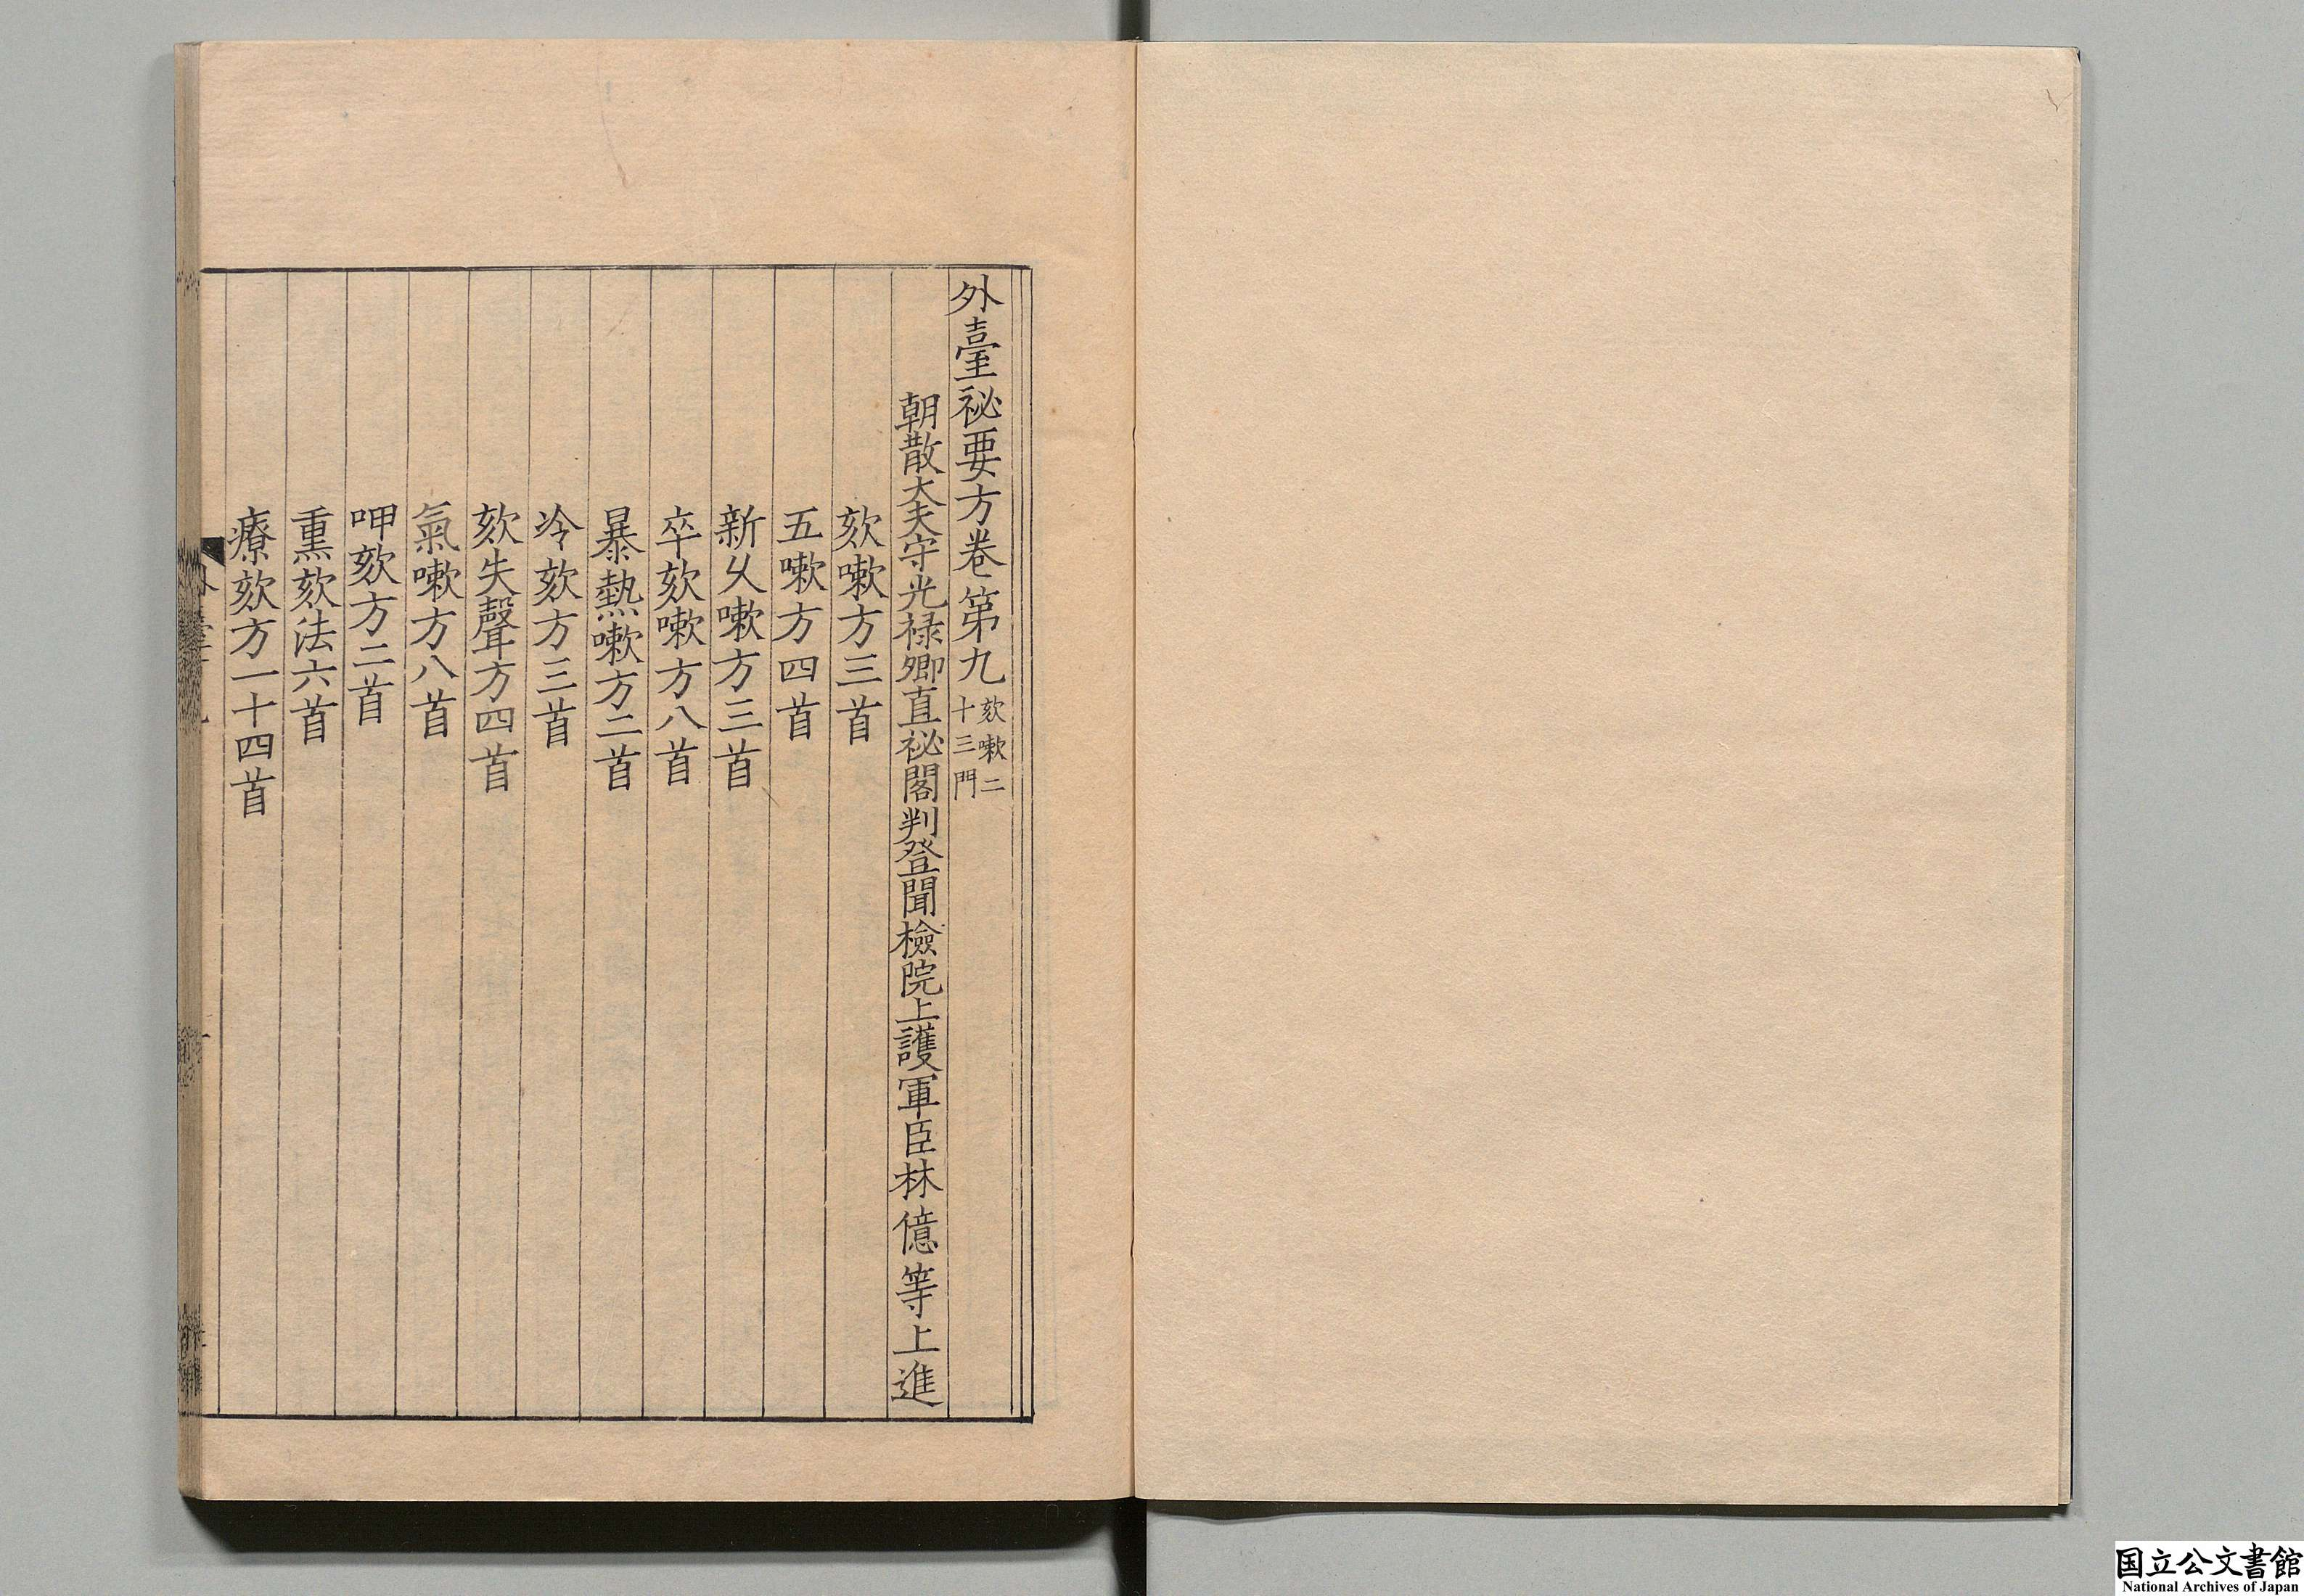 外臺祕要方卷第九欬嗽二
十三門
朝散大夫守光禄卿直祕閣判登聞檢院上護軍臣林億等上進
欬嗽方三首
五嗽方四首
新乆嗽方三首
卒欬嗽方八首
暴熱嗽方二首
冷欬方三首
欬失聲方四首
氣嗽方八首
呷欬方二首
熏欬法六首
療欬方一十四首
国立公文書館
National Archives of Japan